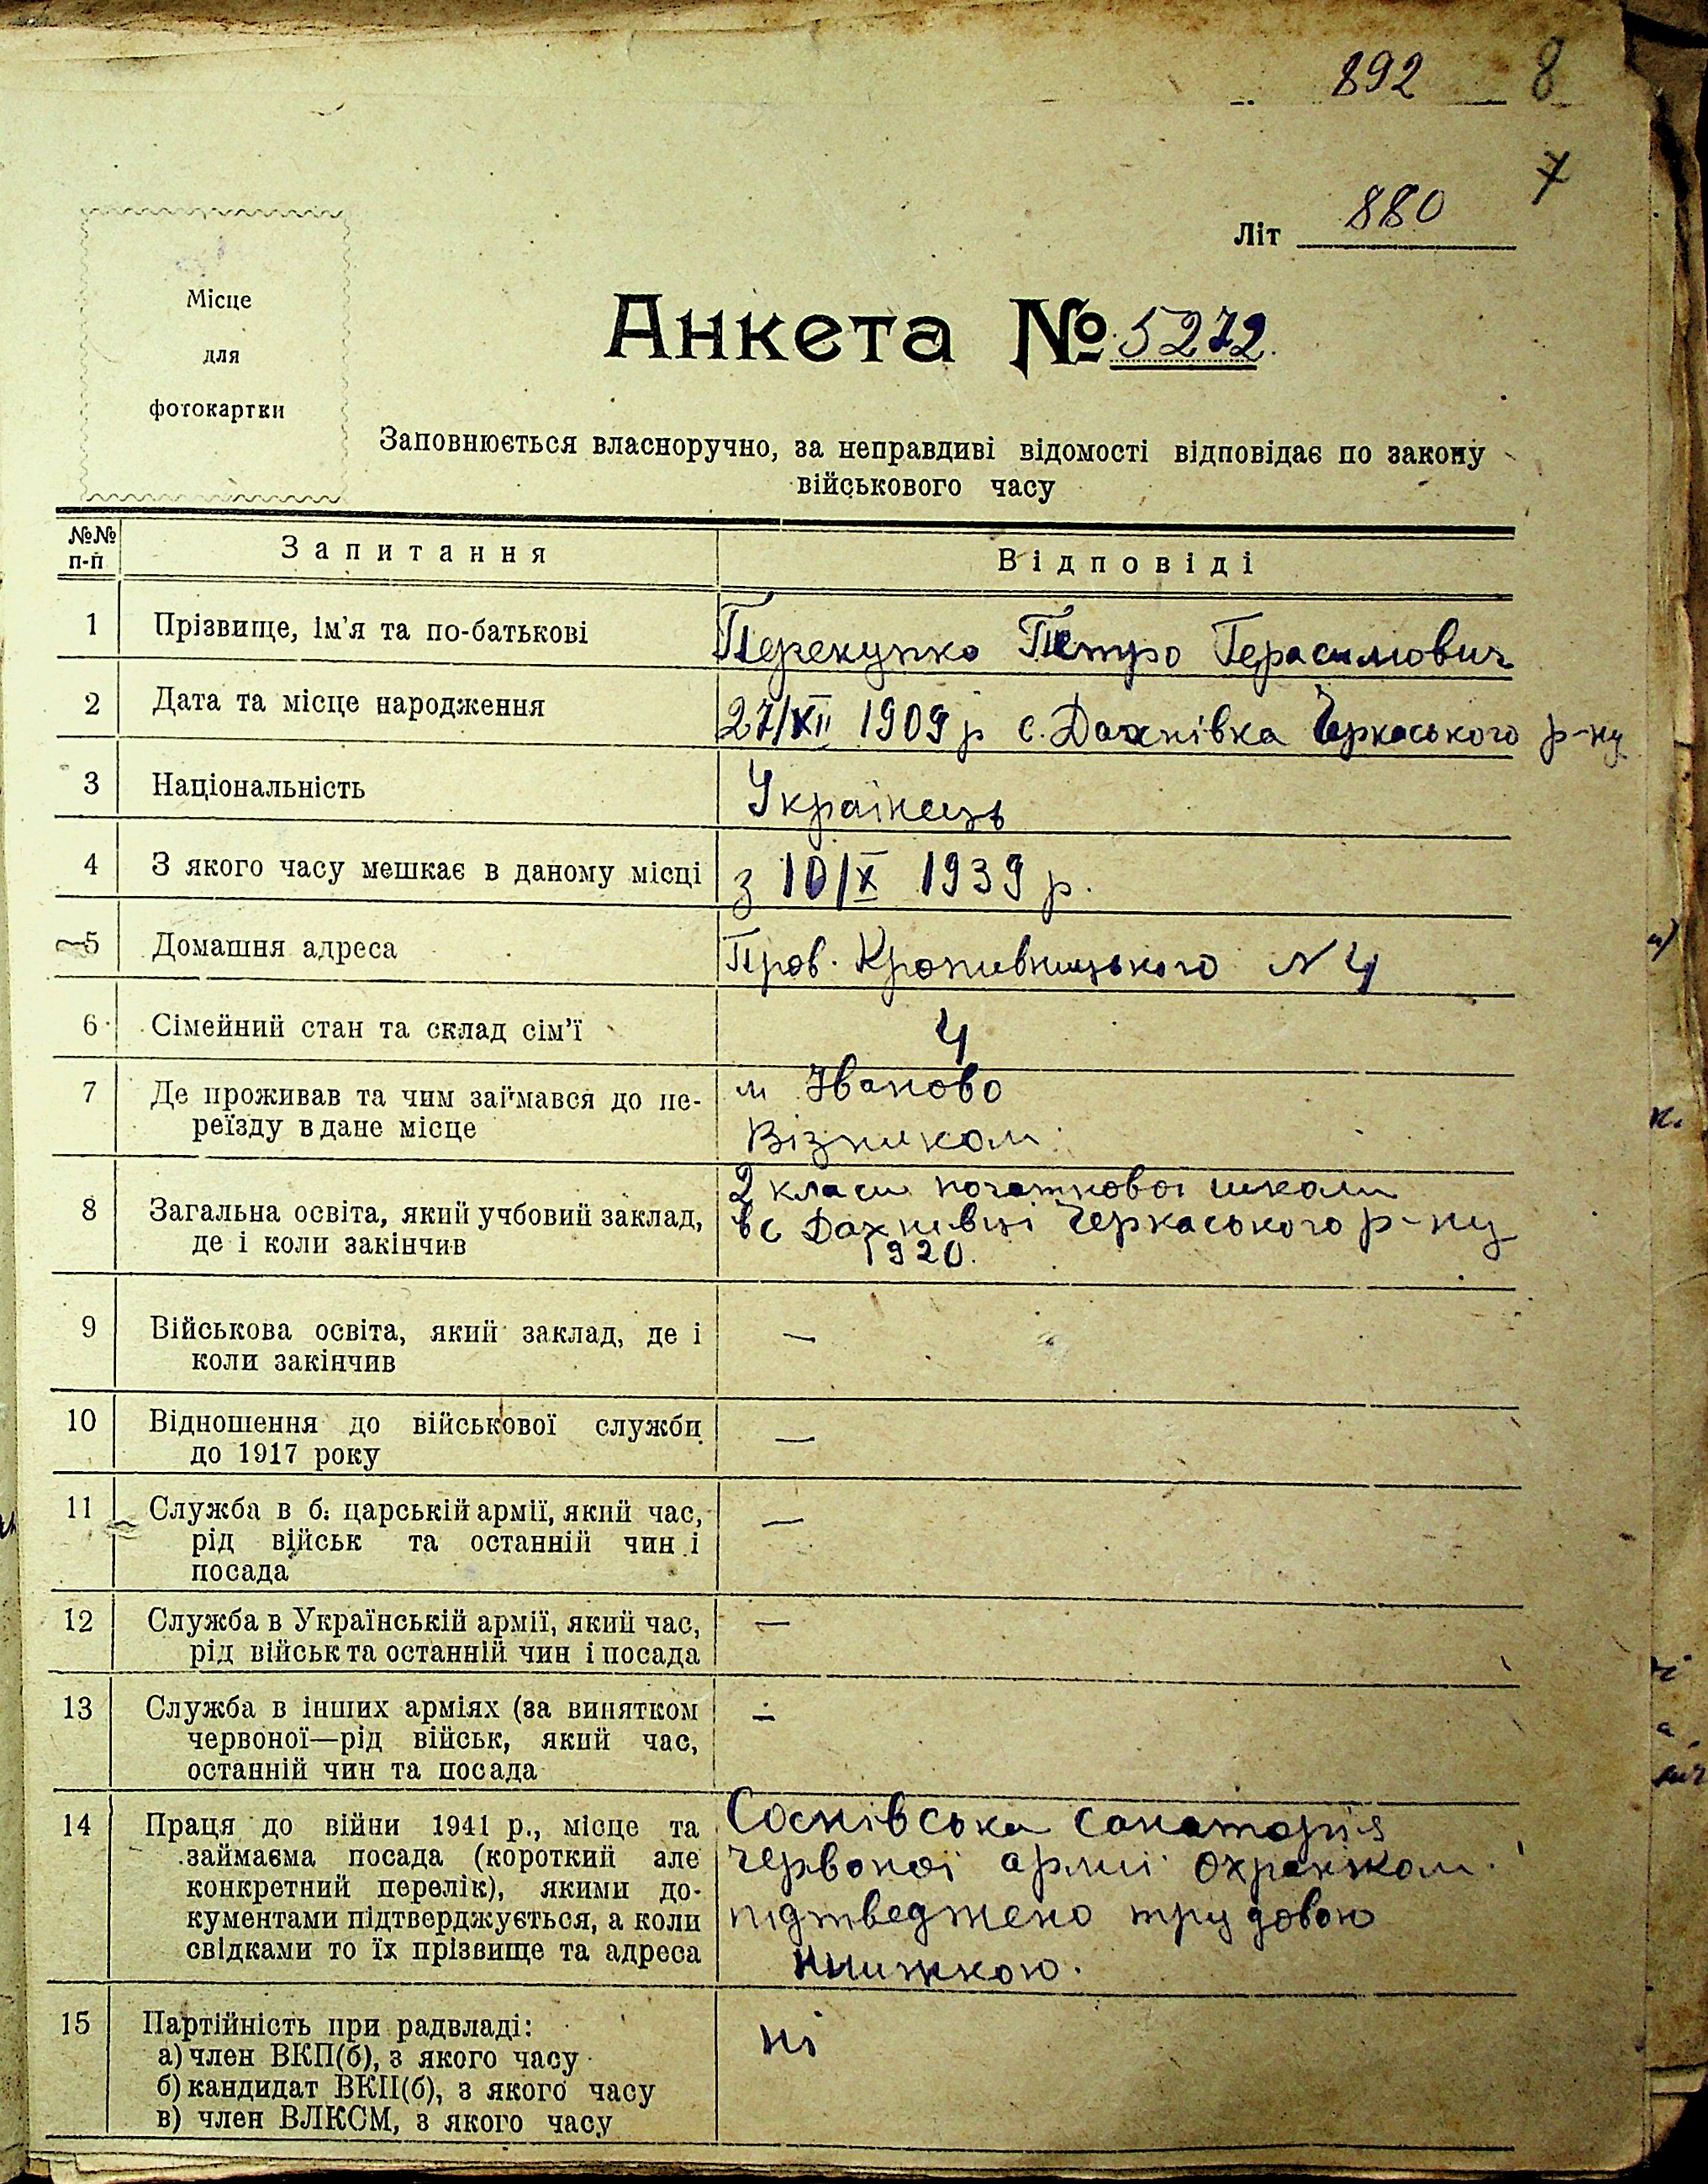 892 8
7
Літ 880
Місце
для
фотокартки
Анкета № 5272.
Заповнюється власноручно, за неправдиві відомості відповідає по закону
військового часу
№№
п-п
Запитання
Відповіді
1 Прізвище, ім'я та по-батькові
Перекупко Петро Герасимович
2 Дата та місце народження
27/XII 1909 р с. Дахнівка Черкаського р-ну
3 Національність
Українець
4 З якого часу мешкає в даному місці
з 10/X 1939 р.
5 Домашня адреса
Пров. Кропивницького N 4
6 Сімейний стан та склад сім'ї
4
7 Де проживав та чим займався до пе-
реїзду в дане місце
м Іваново
Візником
8 Загальна освіта, який учбовий заклад,
де і коли закінчив
2 класи початкової школи
в с Дахнівці Черкаського р-ну
1920.
9 Військова освіта, який заклад, де і
коли закінчив
—
10 Відношення до військової служби
до 1917 року
—
11 Служба в б. царській армії, який час,
рід військ та останній чин і
посада
—
12 Служба в Українській армії, який час,
рід військ та останній чин і посада
—
13 Служба в інших арміях (за винятком
червоної—рід військ, який час,
останній чин та посада
—
14 Праця до війни 1941 р., місце та
займаєма посада (короткий але
конкретний перелік), якими до-
кументами підтверджується, а коли
свідками то їх прізвище та адреса
Соснівська санаторія
червоної армії охранком.
підтведжено трудовою
книжкою.
15 Партійність при радвладі:
а) член ВКП(б), з якого часу
б) кандидат ВКП(б), з якого часу
в) член ВЛКСМ, з якого часу
ні